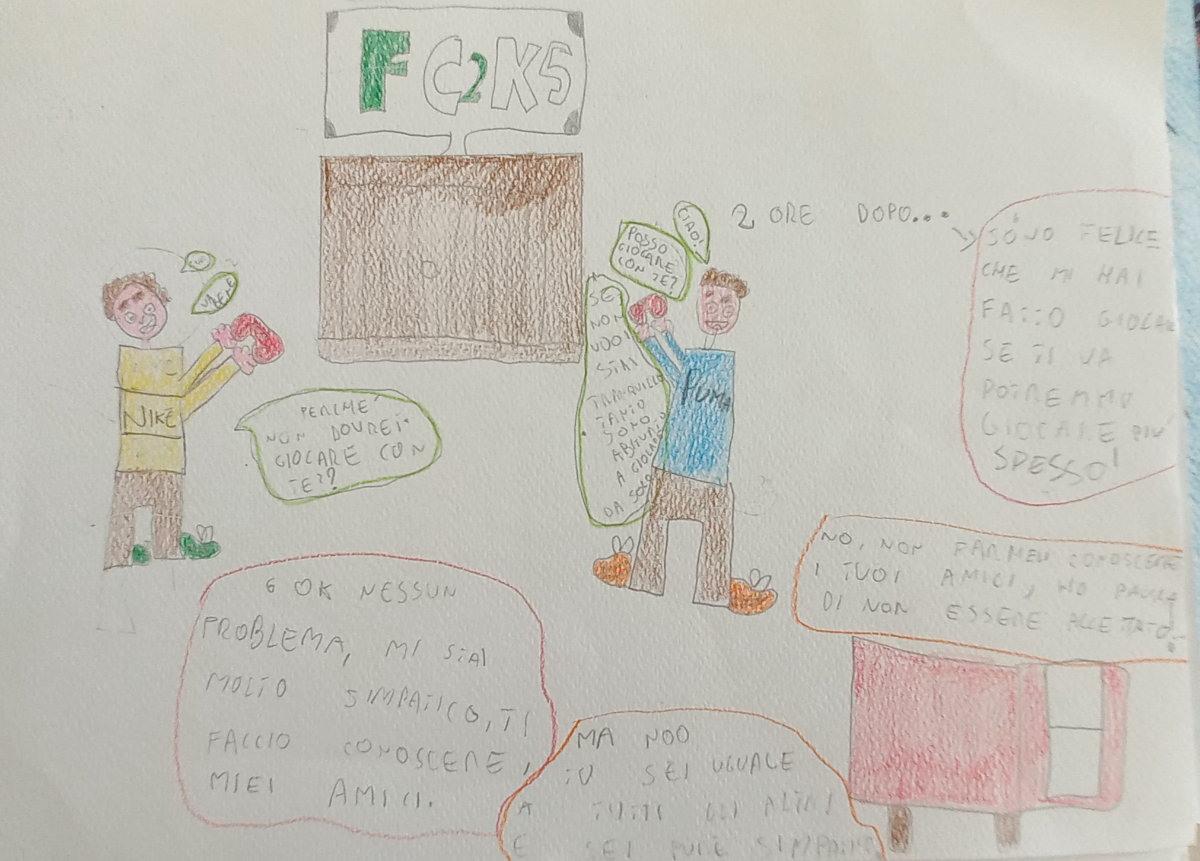 F C2K5
CIAO!
POSSO
GIOCARE
CON TE?
VA
BENE
NIKE
PUMA
PERCHE'
NON DOVREI
GIOCARE CON
TE??
SE
NON
VUOI
STAI
TRANQUILLO
TANTO
SONO
ABITUATO
A GIOCARE
DA SOLO
2 ORE DOPO...
SONO FELICE
CHE MI HAI
FATTO GIOCARE
SE TI VA
POTREMMO
GIOCARE PIU'
SPESSO!
6 OK NESSUN
PROBLEMA, MI STAI
MOLTO SIMPATICO, TI
FACCIO CONOSCERE I
MIEI AMICI.
NO, NON FARMELI CONOSCERE
I TUOI AMICI, HO PAURA
DI NON ESSERE ACCETTATO.
MA NOO
TU SEI UGUALE
A TUTTI GLI ALTRI
E SEI PURE SIMPATICO